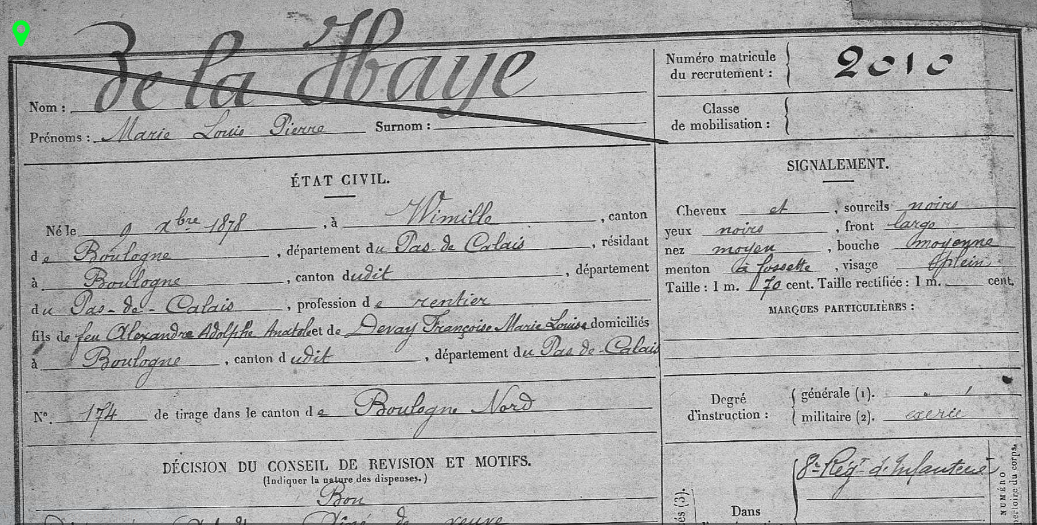 Nom : De la Haye
Prénoms : Marie Louis Pierre Surnom :
Numéro matricule
du recrutement : 2010
Classe
de mobilisation :
ÉTAT CIVIL.
Né le 9 xbre 1878, à Wimille, canton
de Boulogne, département du Pas-de-Calais, résidant
à Boulogne, canton dudit, département
du Pas-de-Calais, profession de rentier
fils de feu Alexandre Adolphe Anatole et de Devay Françoise Marie Louise domiciliés
à Boulogne, canton dudit, département du Pas-de-Calais
N°. 174 de tirage dans le canton de Boulogne Nord
DÉCISION DU CONSEIL DE REVISION ET MOTIFS.
(Indiquer la nature des dispenses.)
Bon
de veuve
SIGNALEMENT.
Cheveux et, sourcils noirs
yeux noirs, front large
nez moyen, bouche moyenne
menton à fossette, visage plein
Taille : 1 m. 70 cent. Taille rectifiée : 1 m. cent.
MARQUES PARTICULIÈRES :
Degré
d'instruction :
générale (1).
militaire (2). exercé
8e Régt d'Infanterie
Dans
NUMÉRO